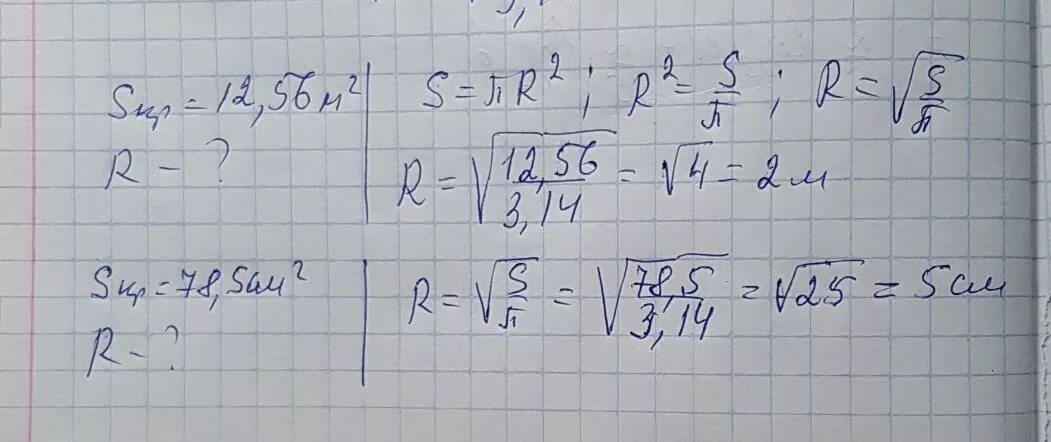 Sкр = 12,56 м² | S = πR² ; R² = S/π ; R = √(S/π)
R - ? | R = √(12,56/3,14) = √4 = 2 м
Sкр = 78,5 см² | R = √(S/π) = √(78,5/3,14) = √25 = 5 см
R - ?